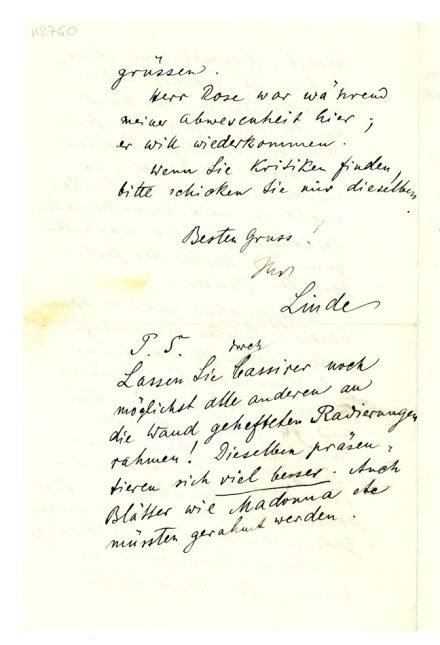 K2760
grüssen.
Herr Rose war während
meiner Abwesenheit hier;
er will wiederkommen.
Wenn Sie Kritiken finden,
bitte schicken Sie mir dieselben.
Besten Gruss!
Ihr
Linde
P. S. durch
Lassen Sie Cassirer noch
möglichst alle anderen an
die Wand gehefteten Radierungen
rahmen! Dieselben präsen-
tieren sich viel besser. Auch
Blätter wie Madonna etc
müssten gerahmt werden.